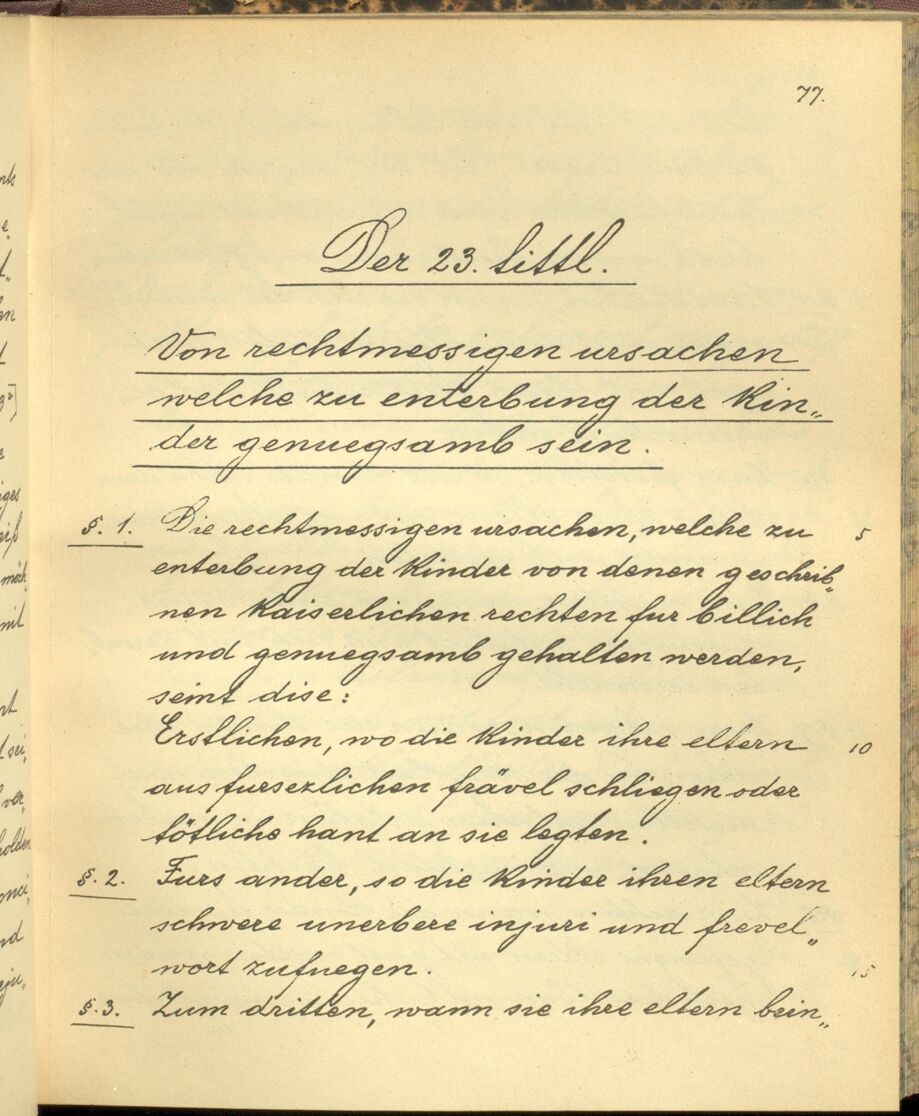 77.
Der 23. tittl.
Von rechtmessigen ursachen
welche zu enterbung der Kin„
der genuegsamb sein.
§. 1. Die rechtmessigen ursachen, welche zu 5
enterbung der Kinder von denen geschrib„
nen Kaiserlichen rechten fur billich
und genuegsamb gehalten werden,
seint dise:
Erstlichen, wo die Kinder ihre eltern 10
aus fursezlichen frävel schliegen oder
tötliche hant an sie legten.
§. 2. Furs ander, so die Kinder ihren eltern
schwere unerbere injuri und frevel„
wort zufuegen. 15
§. 3. Zum dritten, wann sie ihre eltern bein„